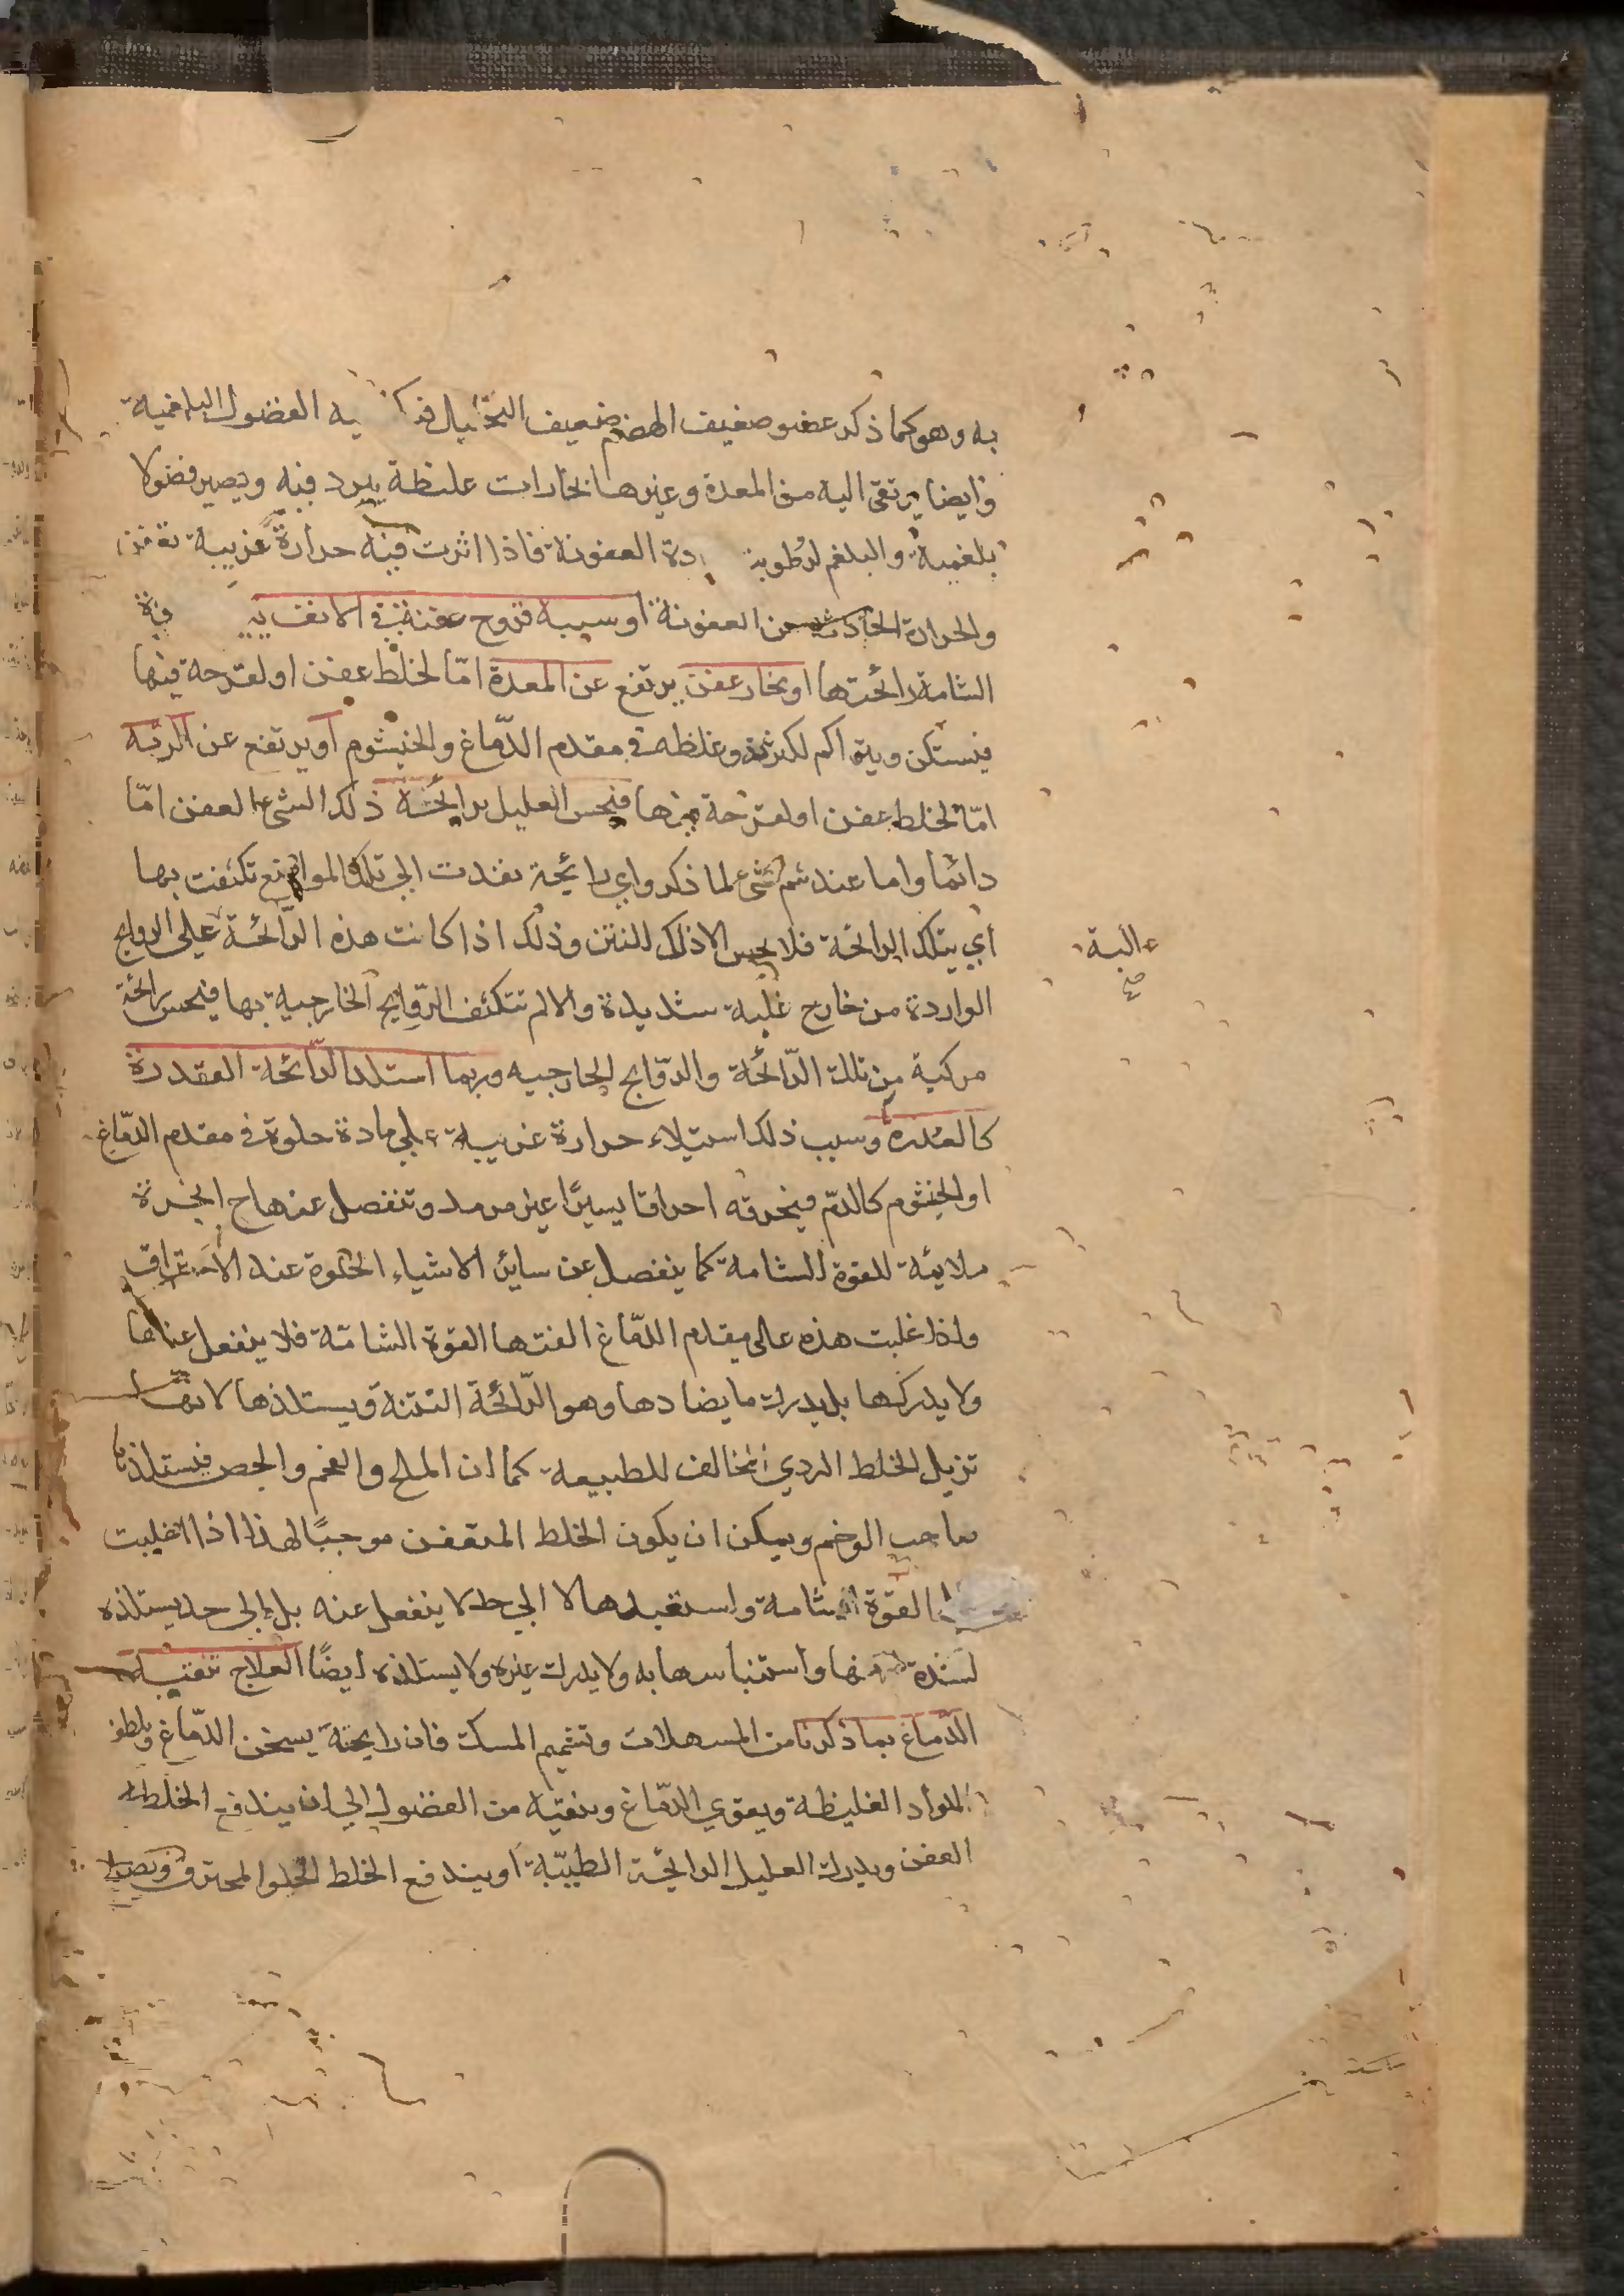 به وهو كما ذكر عضو ضعيف الهضم ضعيف التحلل فـ يه الفضول البلغمية
وايضا يرتقى اليه من المعدة وغيرها بخارات غليظة يبرد فيه ويصير فضولا
بلغمية والبلغم لرطوبته دة العفونة فاذا اثرت فيه حرارة غريبة تعفن
والحرارة الحادثة من العفونة او سببه قروح عفنة في الانف
الشامة رائحتها او بخار عفن يرتفع عن المعدة امّا لخلط عفن او لقرحة فيها
فيستكن ويتراكم لكثرته وغلظه في مقدم الدّماغ والخيشوم او يرتفع عن الرئة
امّا لخلط عفن او لقرحة فيها فيحس العليل برائحة ذلك الشيء العفن امّا
دائما واما عند شم شيء لما ذكر واي رائحة نفدت الى تلك المواضع تكيفت بها
اي بتلك الرائحة فلا يحس الا ذلك النتن وذلك اذا كانت هذه الرّائحة على الروايح
غالبة
صح
الواردة من خارج غلبة شديدة والا لم تتكيف الرّوايح الخارجية بها فيحس رائحة
مركبة من تلك الرّائحة والرّوايح الخارجيه وربما استلذ الرّائحة القذرة
كالعذره وسبب ذلك استيلاء حرارة غريبة على مادة حلوة في مقدم الدّماغ
او الخيشوم كالدّم فيحرقه احراقا يسيرًا غير مرمد وتنفصل عنها ح ابخرة
ملائمة للقوة الشامة كما ينفصل عن سائر الاشياء الحلوة عند الاحتراق
واذا غلبت هذه على مقدم الدّماغ الفتها القوة الشامّة فلا ينفعل عنها
ولا يدركها بل يدرك ما يضادها وهو الرّائحة النتنة ويستلذها لانها
تزيل الخلط الردي المخالف للطبيعة كما ان الملح والفحم والجص فيستلذها
صاحب الوخم ويمكن ان يكون الخلط المتعفن موجبًا لهذا اذا اغلبت
القوة الشامة واستقبلها لا الى حد لا ينفعل عنه بل الى حد يستلذه
لشدة واستيناسها به ولا يدرك غيره ولا يستلذه ايضًا العلاج تنقية
الدّماغ بما ذكرنا من المسهلات وتشميم المسك فان رايحته يسخن الدّماغ ويلطف
المواد الغليظة ويقوي الدّماغ وينقيه من الفضول الى ان يندفع الخلط
العفن ويدرك العليل الرائحة الطيّبة او يندفع الخلط الحلو المحترق